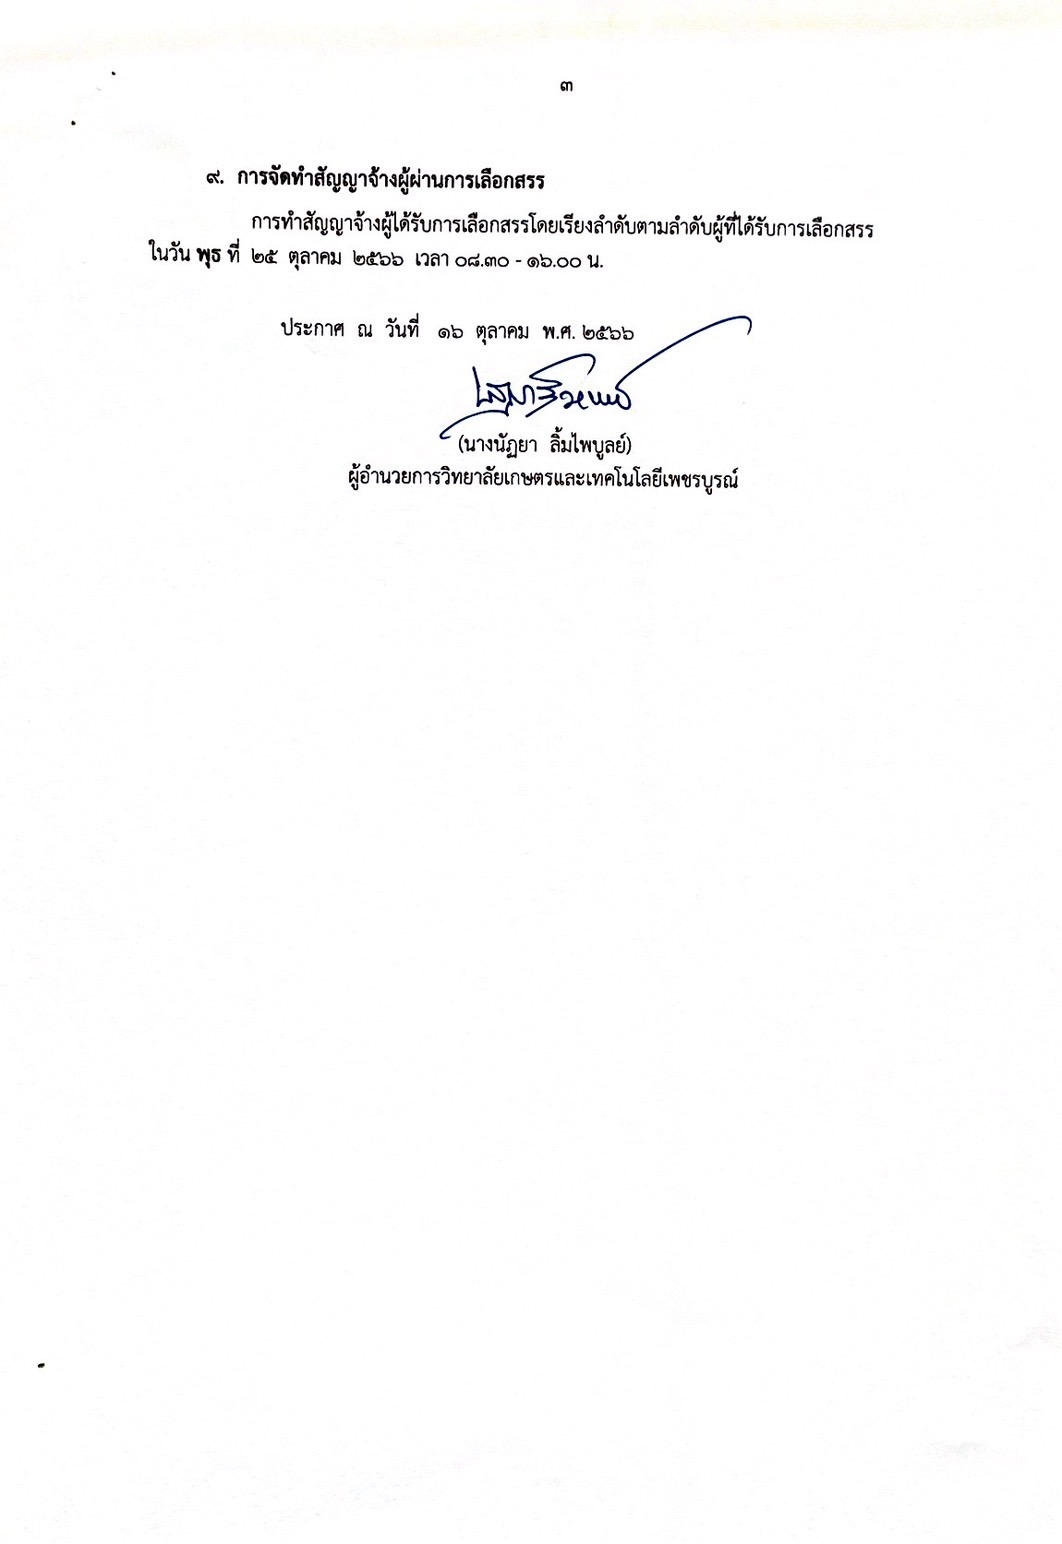 ๓
๙. การจัดทำสัญญาจ้างผู้ผ่านการเลือกสรร
การทำสัญญาจ้างผู้ได้รับการเลือกสรรโดยเรียงลำดับตามลำดับผู้ที่ได้รับการเลือกสรร
ในวัน พุธ ที่ ๒๕ ตุลาคม ๒๕๖๖ เวลา ๐๘.๓๐ - ๑๖.๐๐ น.
ประกาศ ณ วันที่ ๑๖ ตุลาคม พ.ศ. ๒๕๖๖
(นางนัฏยา ลิ้มไพบูลย์)
ผู้อำนวยการวิทยาลัยเกษตรและเทคโนโลยีเพชรบูรณ์